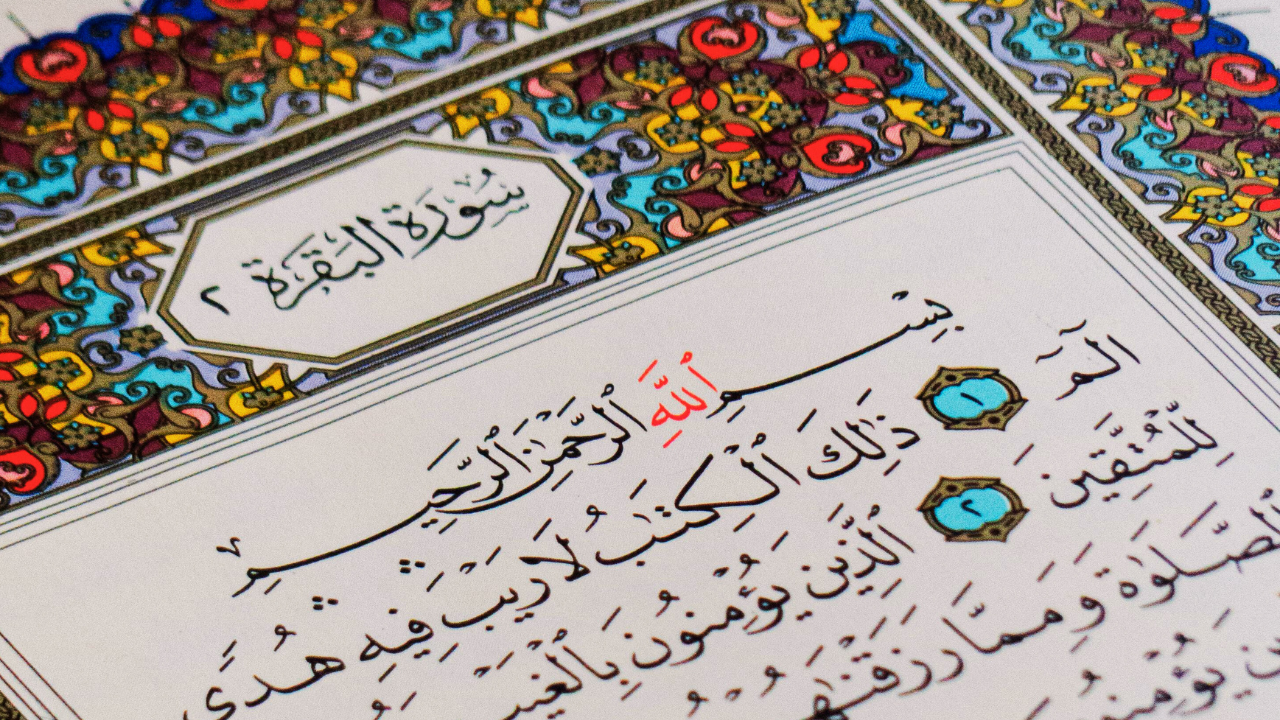 سُورَةُ البَقَرَةِ ٢
بِسْمِ ٱللَّهِ ٱلرَّحْمَٰنِ ٱلرَّحِيمِ
الٓمٓ ١ ذَٰلِكَ ٱلْكِتَٰبُ لَا رَيْبَ ۛ فِيهِ ۛ هُدًى
لِّلْمُتَّقِينَ ٢ ٱلَّذِينَ يُؤْمِنُونَ بِٱلْغَيْبِ
ٱلصَّلَوٰةَ وَمِمَّا رَزَقْنَٰهُمْ
يُؤْمِنُونَ